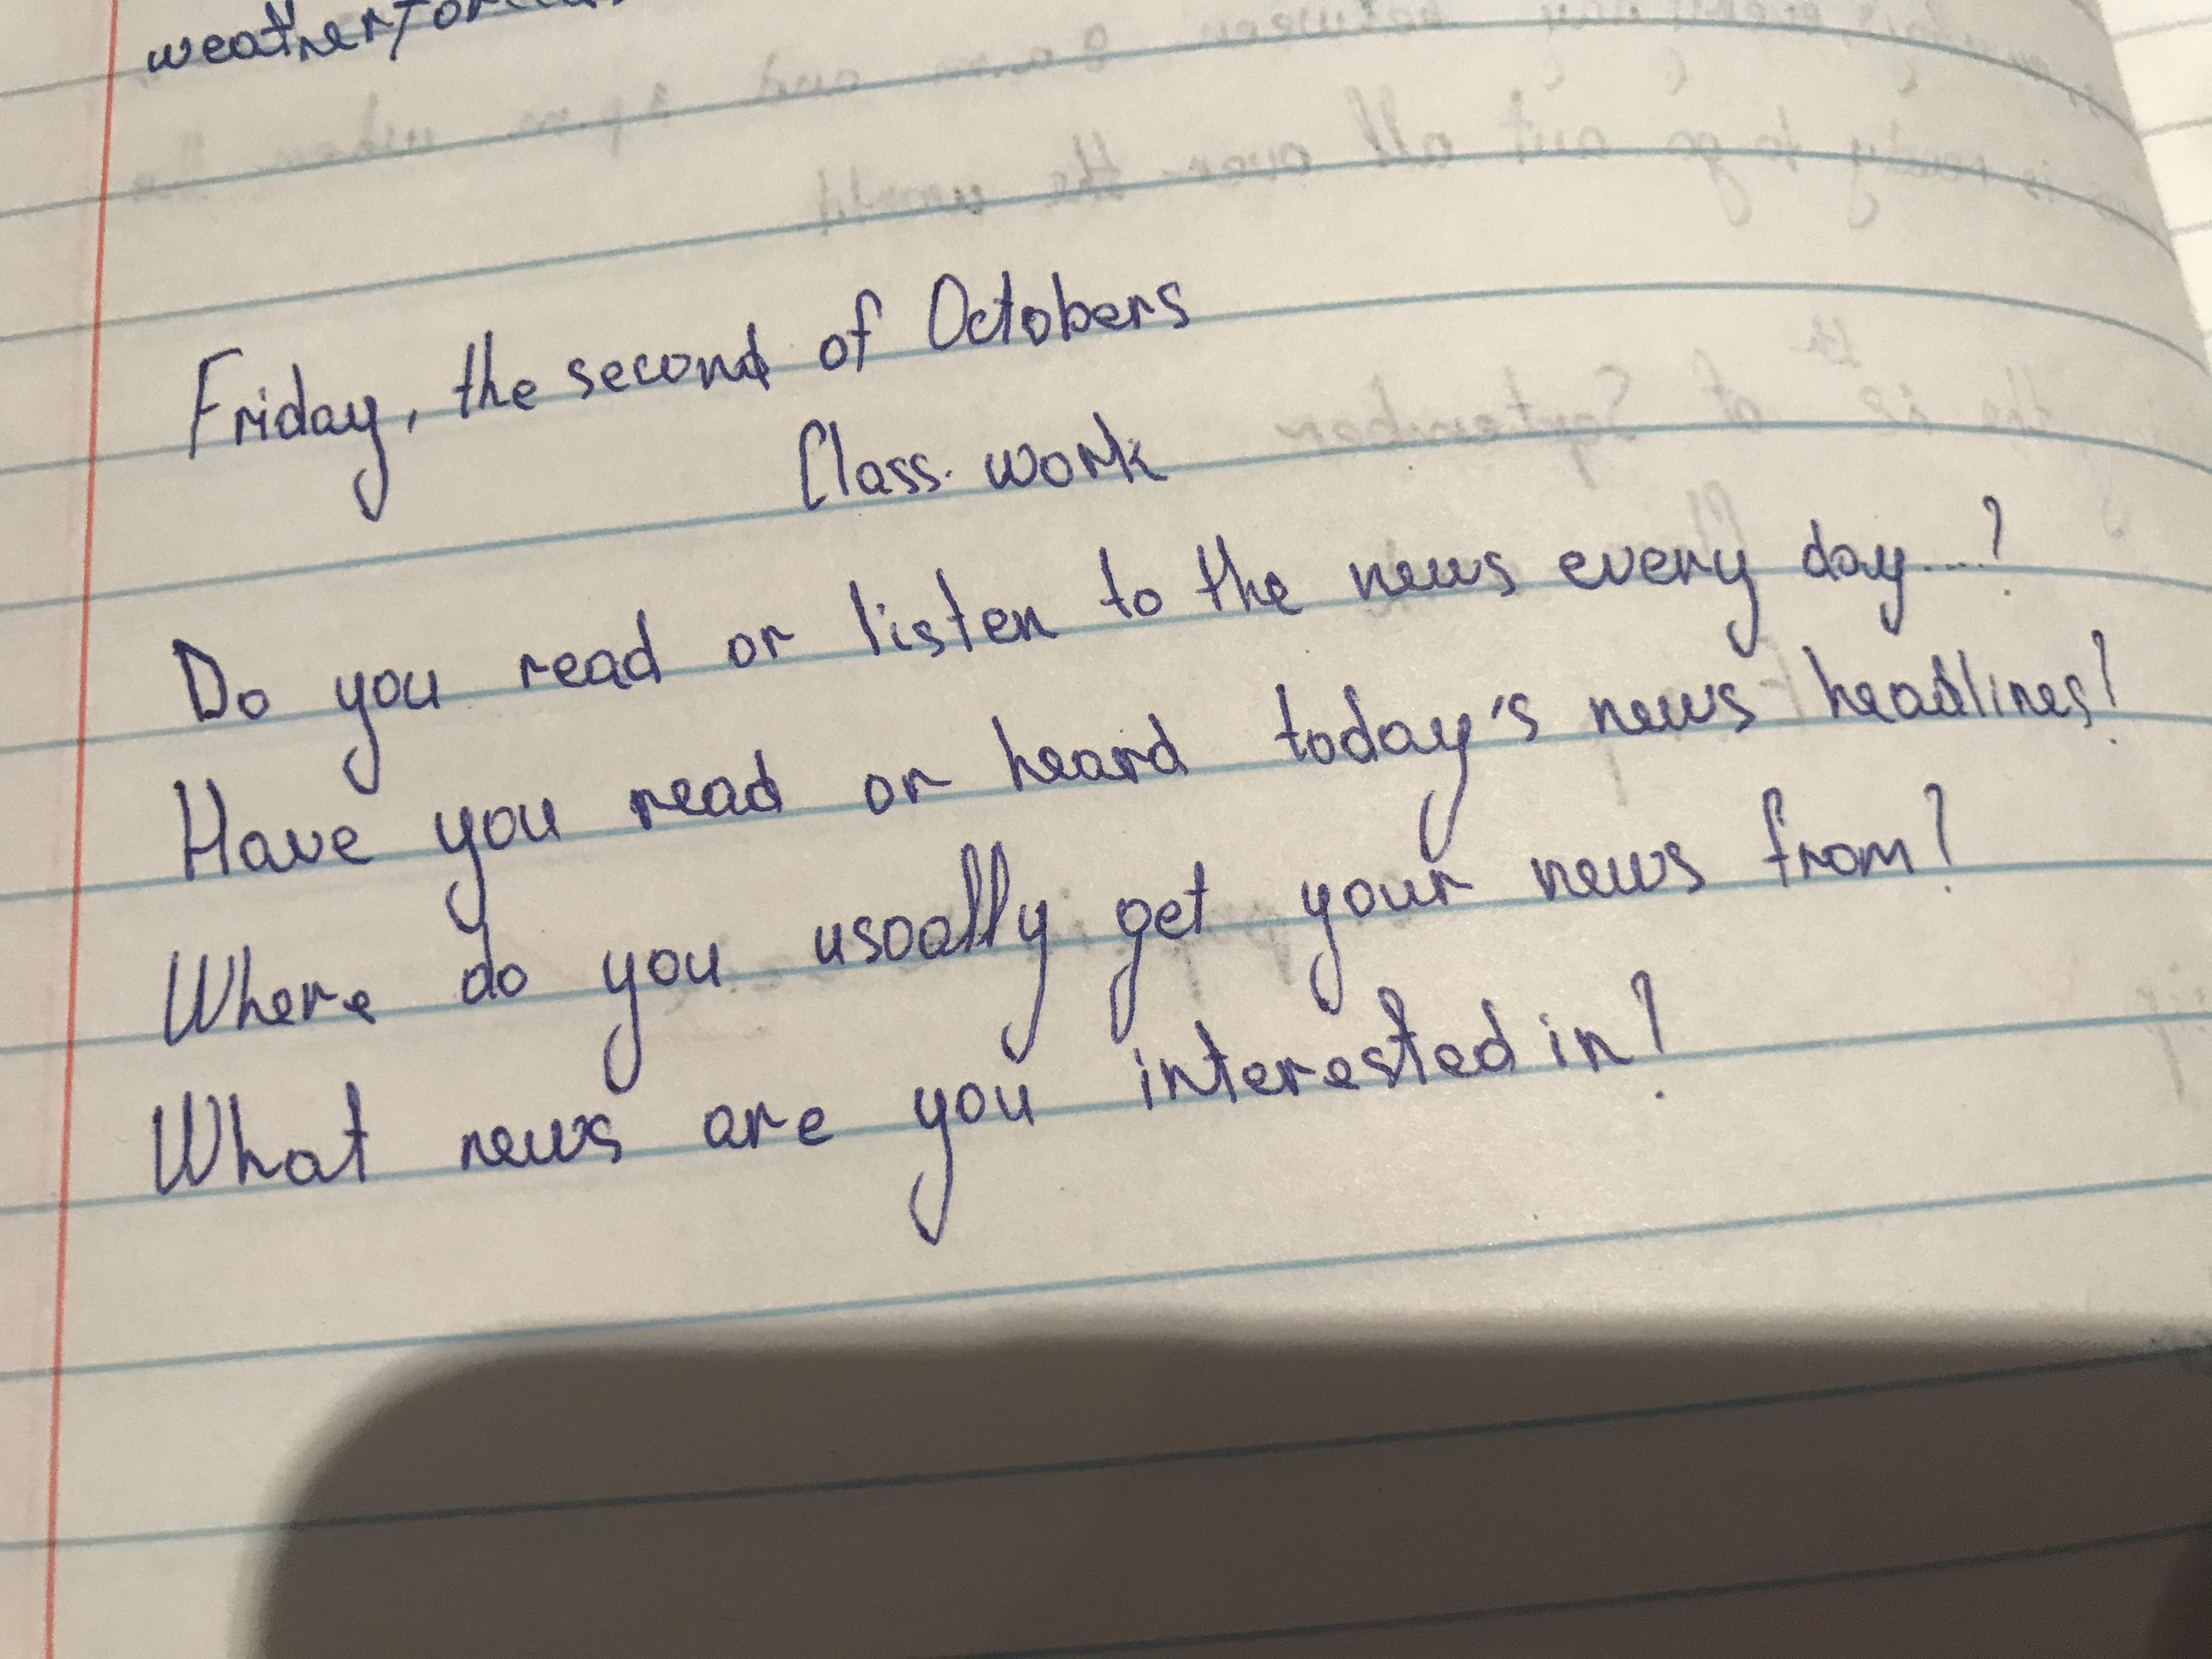 Friday, the second of Octobers
Class work
Do you read or listen to the news every day....?
Have you read or heard today's news headlines?
Where do you usoally get your news from?
What news are you interested in?